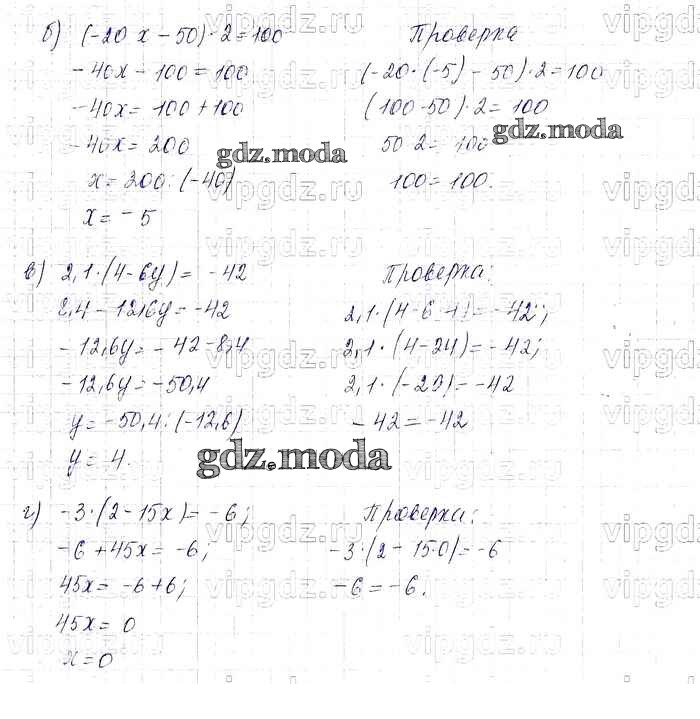 б) (-20x - 50)·2 = 100
-40x - 100 = 100
-40x = 100 + 100
-40x = 200
x = 200 : (-40)
x = -5
Проверка
(-20·(-5) - 50)·2 = 100
(100 - 50)·2 = 100
50·2 = 100
100 = 100.
в) 2,1·(4 - 6y) = -42
8,4 - 12,6y = -42
-12,6y = -42 - 8,4
-12,6y = -50,4
y = -50,4 : (-12,6)
y = 4.
Проверка:
2,1·(4 - 6·4) = -42;
2,1·(4 - 24) = -42;
2,1·(-20) = -42
-42 = -42
г) -3·(2 - 15x) = -6;
-6 + 45x = -6;
45x = -6 + 6;
45x = 0
x = 0
Проверка:
-3·(2 - 15·0) = -6
-6 = -6.
gdz.moda
gdz.moda
gdz.moda
vipgdz.ru